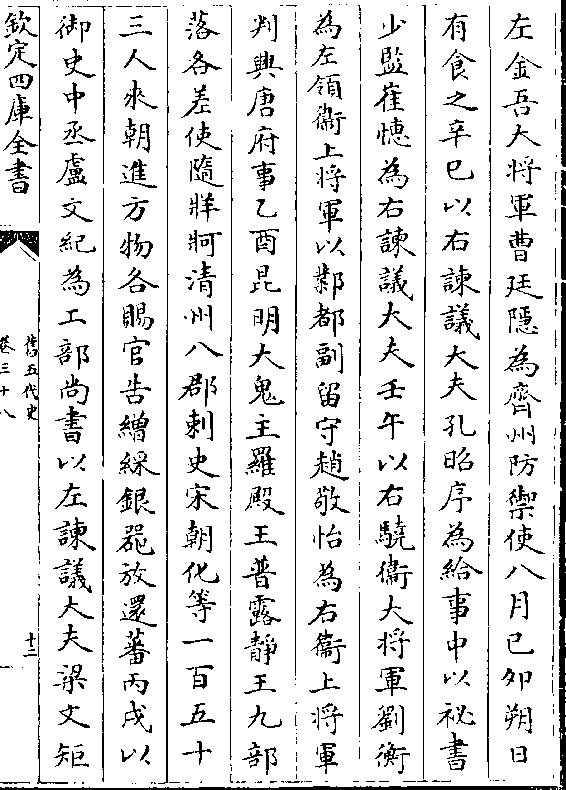 左金吾大將軍曹廷隱為齊州防禦使八月己卯朔日
有食之辛巳以右諫議大夫孔昭序為給事中以祕書
少監崔憓為右諫議大夫壬午以右驍衞大將軍劉衡
為左領衞上將軍以鄴都副留守趙敬怡為右衞上將軍
判興唐府事乙酉昆明大鬼主羅殿王普露靜王九部
落各差使隨牂牁清州八郡刺史宋朝化等一百五十
三人來朝進方物各賜官告繒綵銀器放還蕃丙戌以
御史中丞盧文紀為工部尚書以左諫議大夫梁文矩
欽定四庫全書
舊五代史
卷三十八
十三